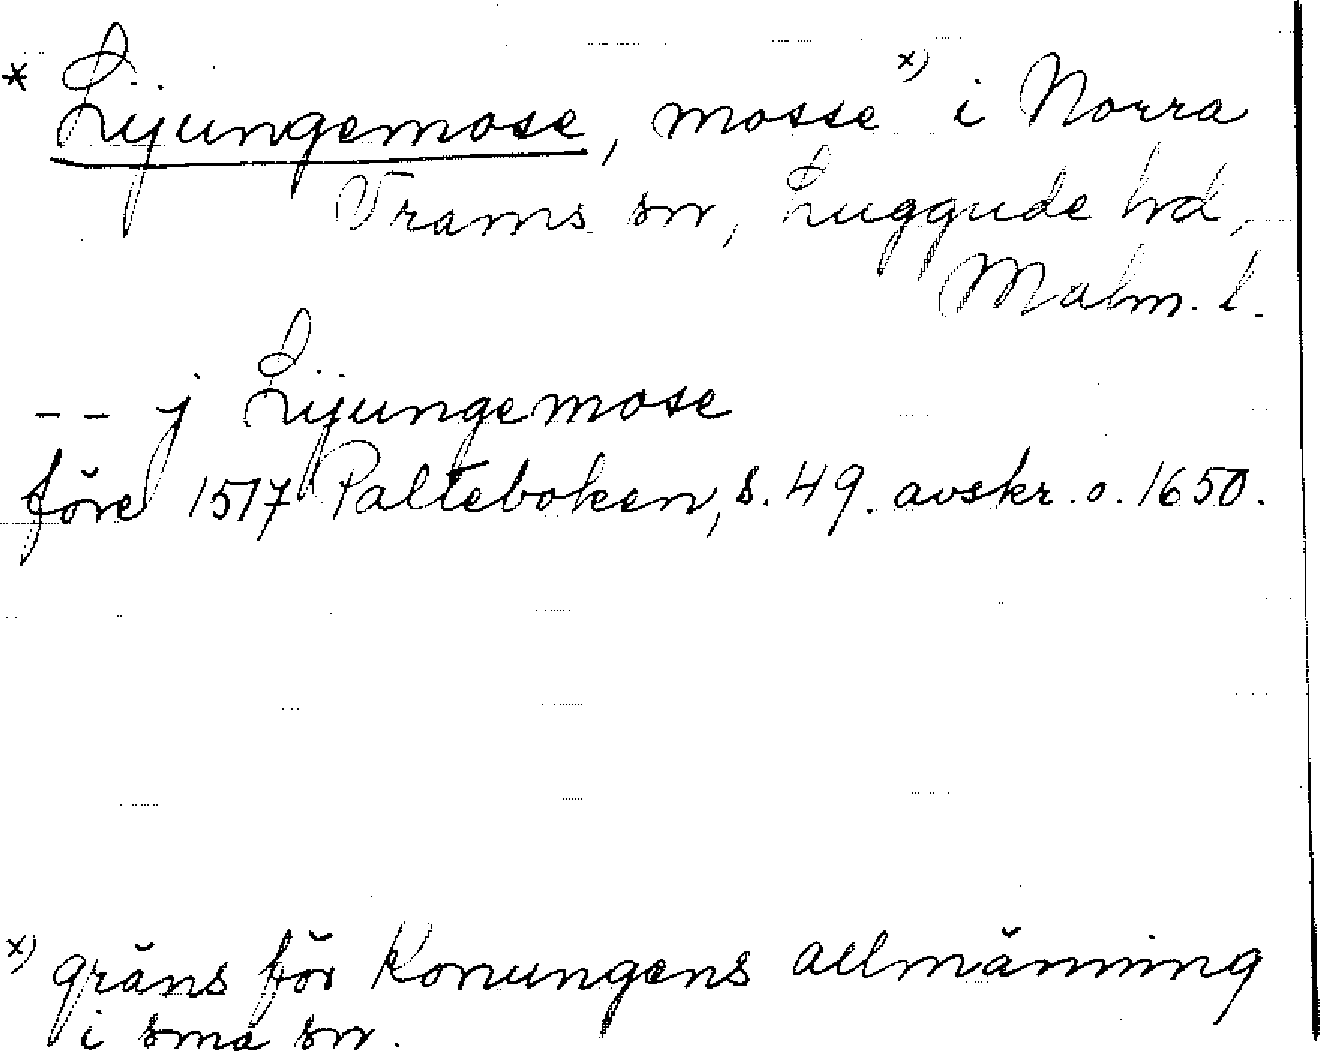 * Lijungemose, mosse x) i Norra
Vrams sn, Luggude hd,
Malm. l.
-- j Lijungemose
före 1517 Palteboken, s. 49. avskr. o. 1650.
x) gräns för Konungens allmänning
i sma sn.